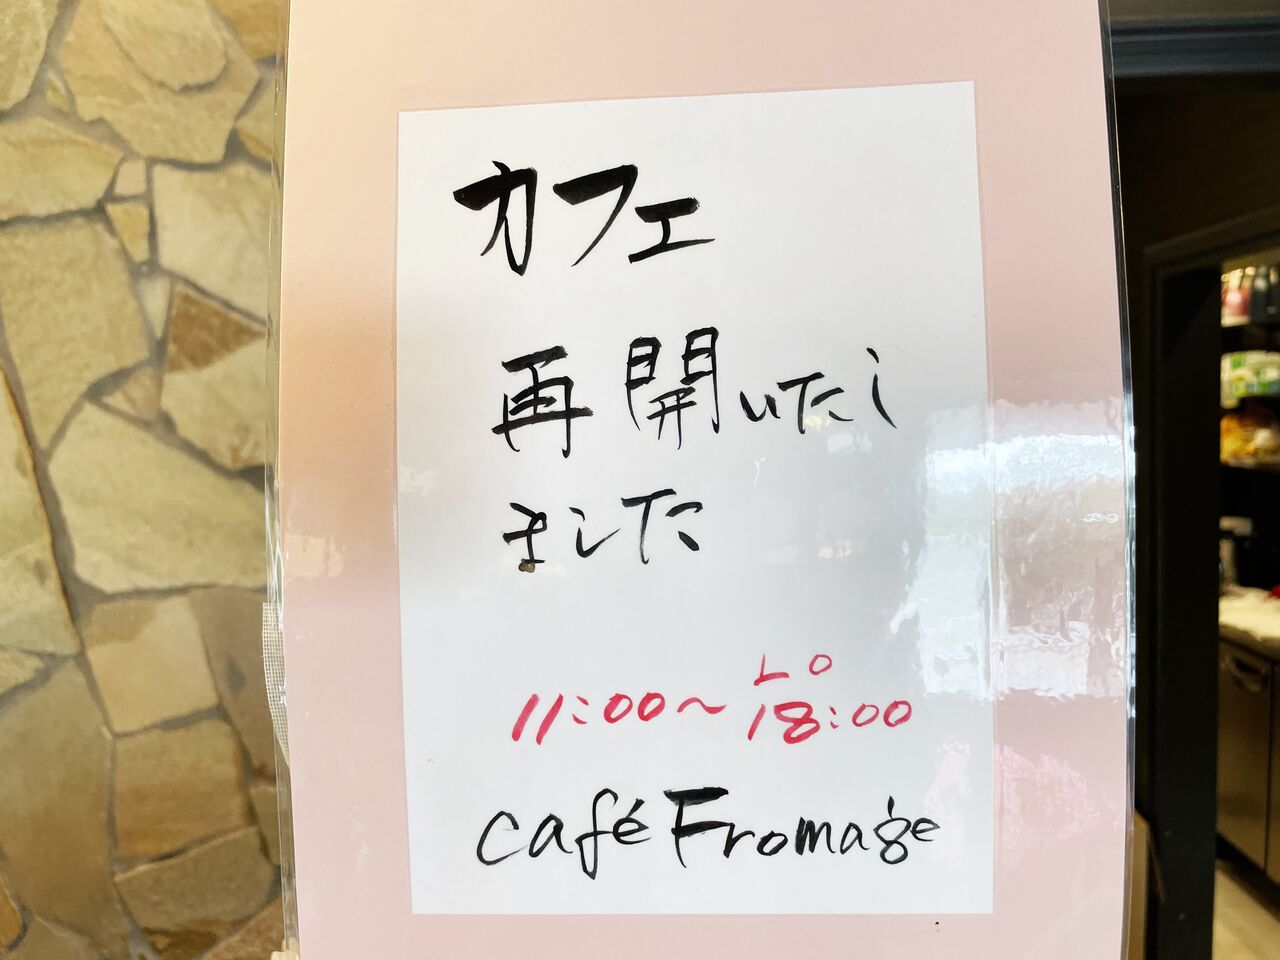 カフェ
再開いたし
ました
LO
11:00～18:00
café Fromage